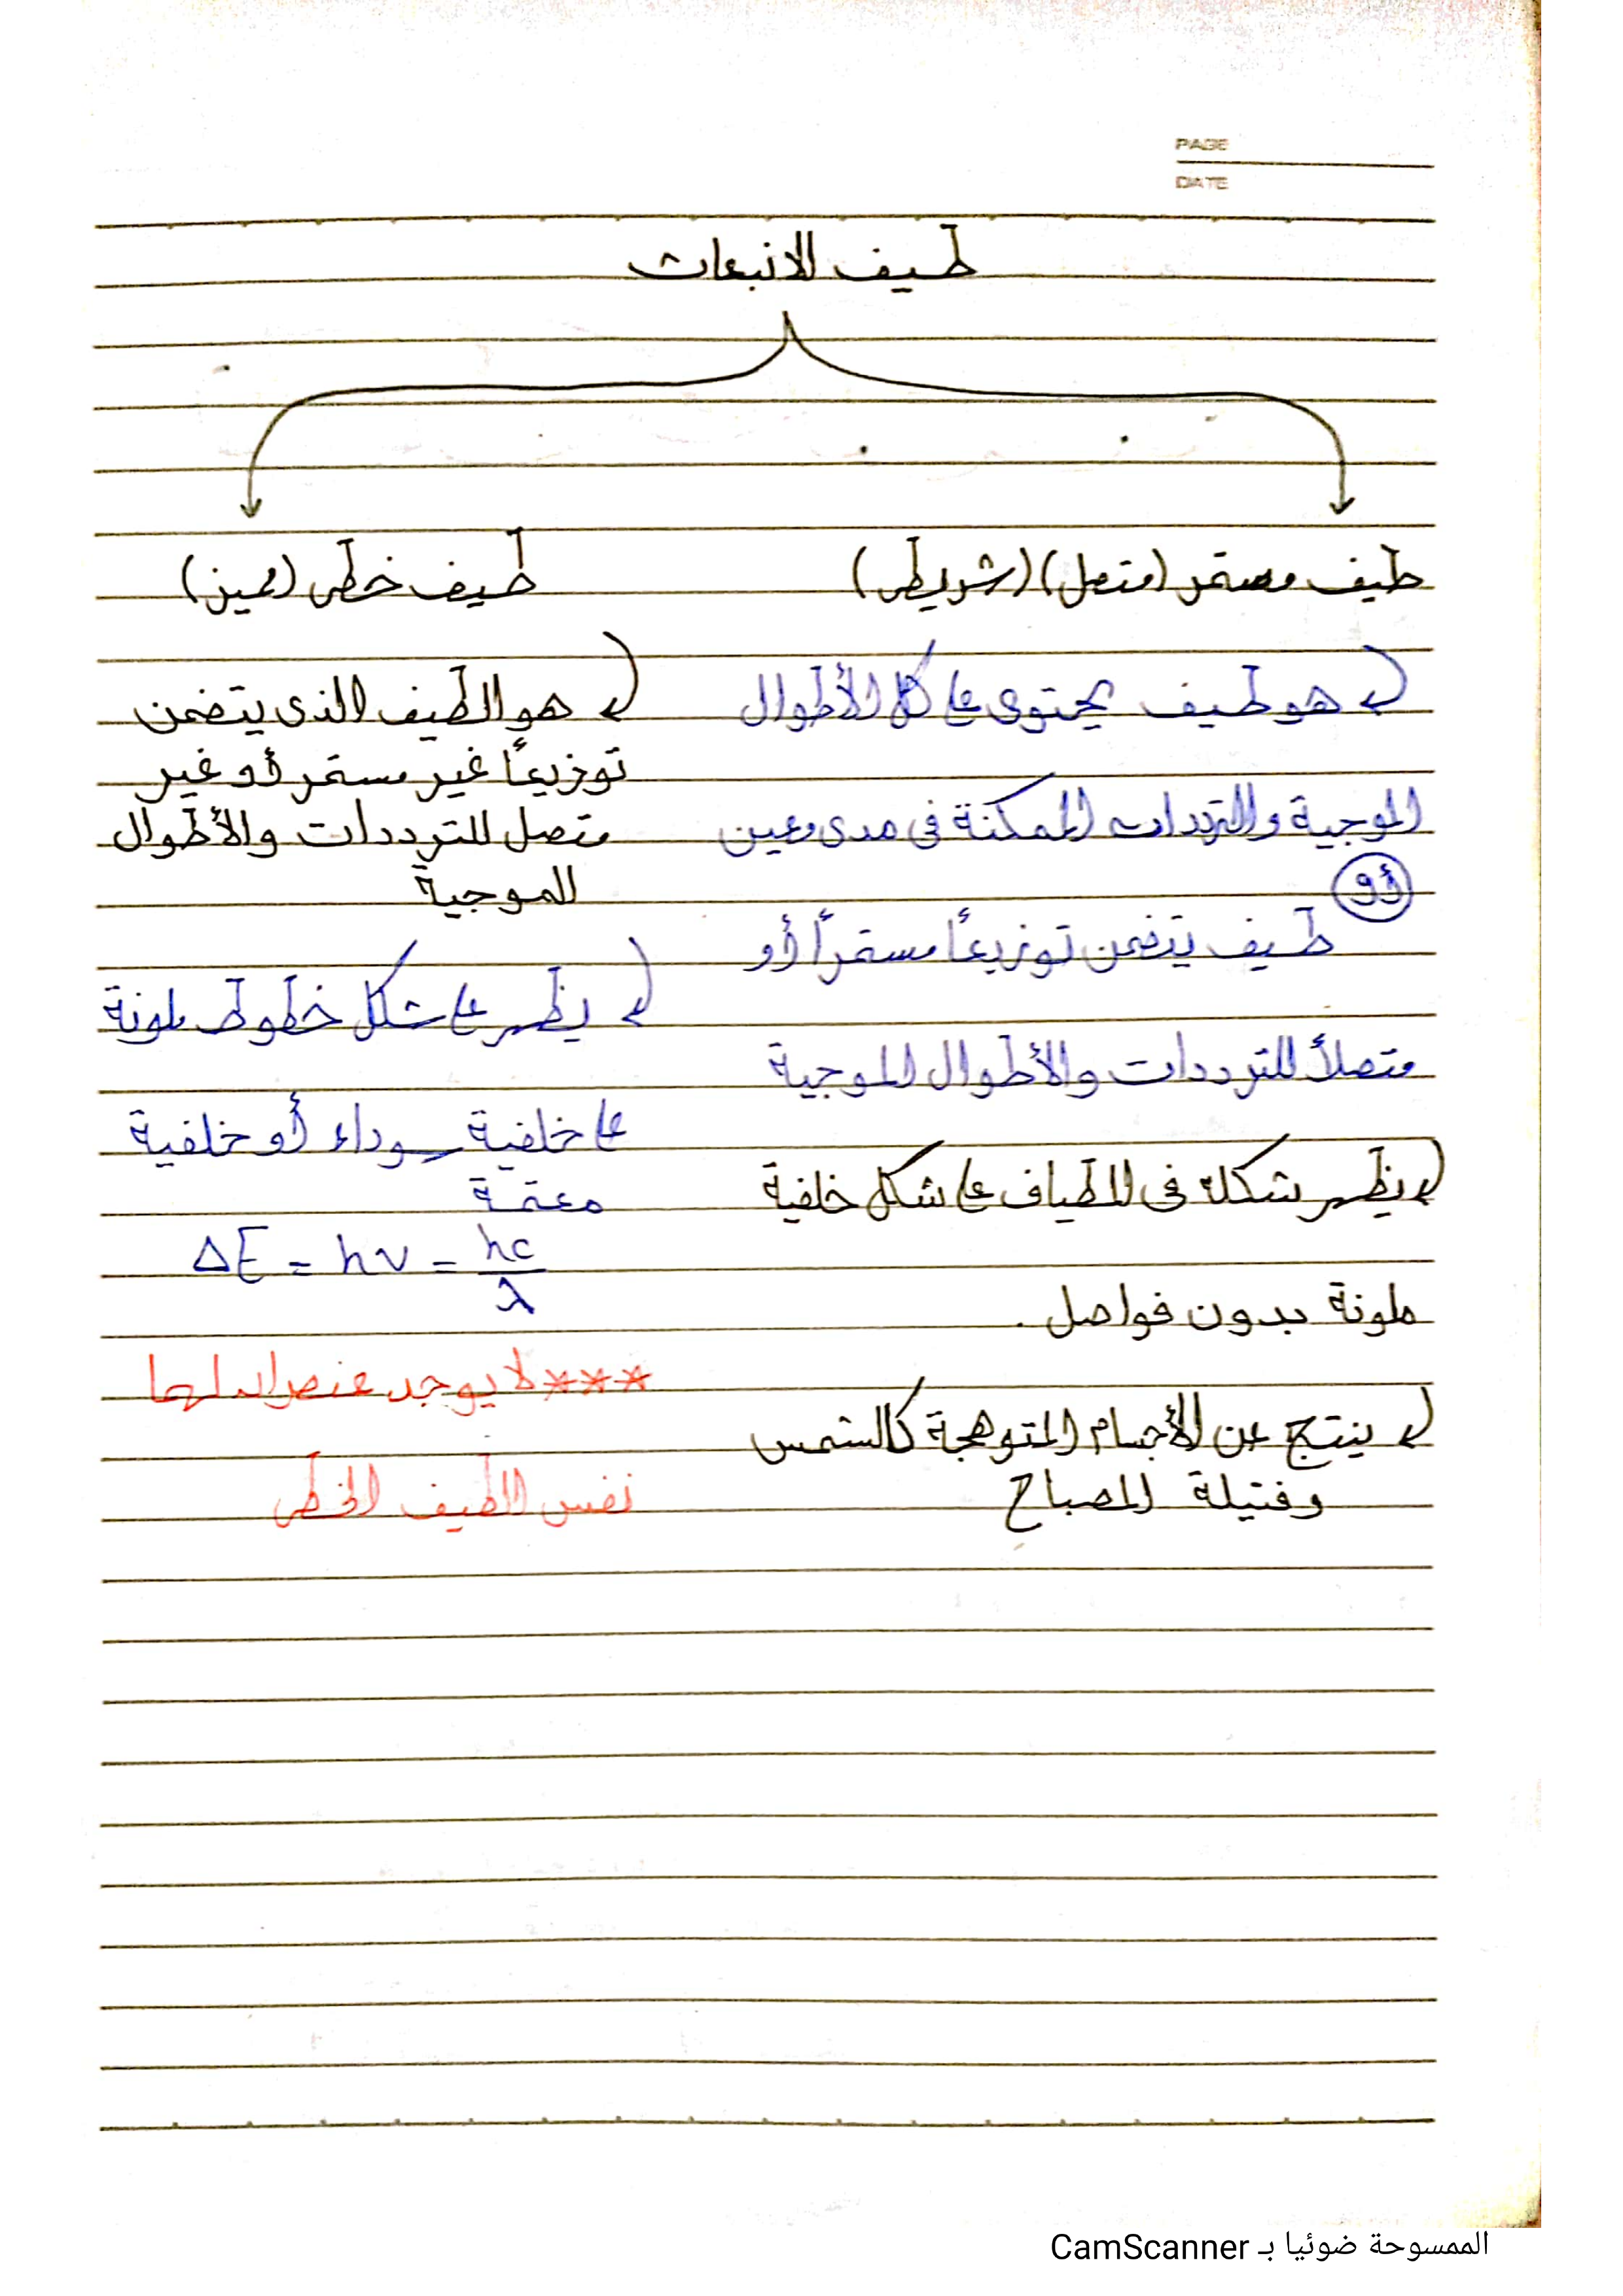 PAGE
DATE
طيف الانبعاث
طيف مستمر (متصل) (شريطى)
هو طيف يحتوى على كل الأطوال
الموجية والترددات الممكنة فى مدى معين
أو
طيف يتضمن توزيعاً مستمراً أو
متصلاً للترددات والأطوال الموجية
يظهر شكله فى المطياف على شكل خلفية
ملونة بدون فواصل.
ينتج عن الأجسام المتوهجة كالشمس
وفتيلة المصباح
طيف خطى (مميز)
هو الطيف الذى يتضمن
توزيعاً غير مستمر أو غير
متصل للترددات والأطوال
الموجية
يظهر على شكل خطوط ملونة
على خلفية سوداء أو خلفية
معتمة
ΔE = hν = hc/λ
*** لا يوجد عنصران لهما
نفس الطيف الخطى
الممسوحة ضوئيا بـ CamScanner